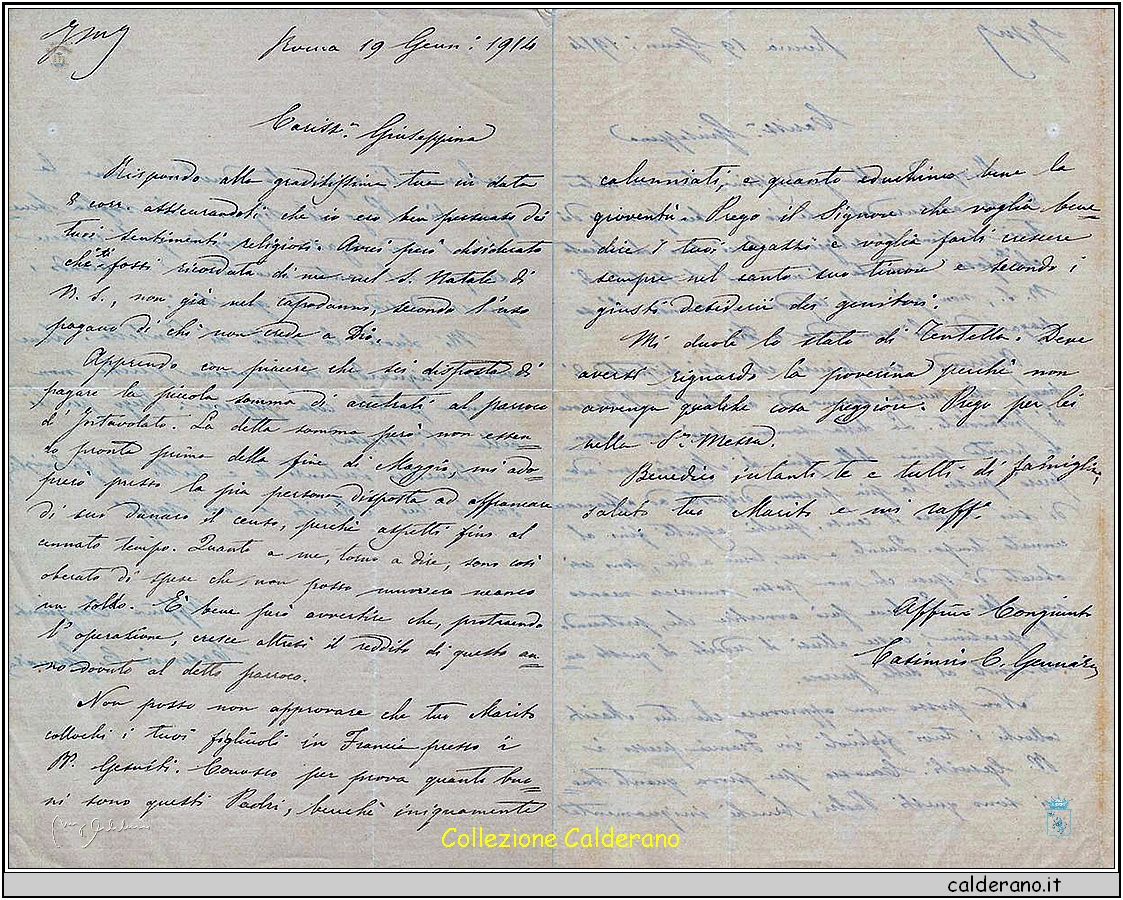 JMJ
Roma 19 Genn: 1914
Cariss.a Giuseppina
Rispondo alla graditissima tua in data
8 corr. assicurandoti che io ero ben persuaso dei
tuoi sentimenti religiosi. Avrei però desiderato
che ti fossi ricordata di me nel S. Natale di
N. S., non già nel capodanno, secondo l'uso
pagano di chi non crede a Dio.
Apprendo con piacere che sei disposta di
pagare la piccola somma di arretrati al parroco
d'Intavolato. La detta somma però non essen=
do pronta prima della fine di Maggio, mi ado=
prerò presso la pia persona disposta ad affrancare
di suo danaro il censo, perchè aspetti fino al
cennato tempo. Quanto a me, torno a dire, sono così
oberato di spese che non posso muovere neanco
un soldo. È bene però avvertire che, protraendo
l'operazione, cresce altresì il reddito di questo an=
no dovuto al detto parroco.
Non posso non approvare che tuo Marito
collochi i tuoi figliuoli in Francia presso i
PP. Gesuiti. Conosco per prova quanto buo=
ni sono questi Padri, benchè iniquamente
calunniati, e quanto educhino bene la
gioventù. Prego il Signore che voglia bene=
dire i tuoi ragazzi e voglia farli crescere
sempre nel santo suo timore e secondo i
giusti desiderii dei genitori.
Mi duole lo stato di Tentella. Deve
aversi riguardo la poverina perchè non
avvenga qualche cosa peggiore. Prego per lei
nella S. Messa.
Benedico intanto te e tutti di famiglia,
saluto tuo Marito e mi raff.o
Affmo Congiunto
Casimiro C. Gennari
Collezione Calderano
calderano.it